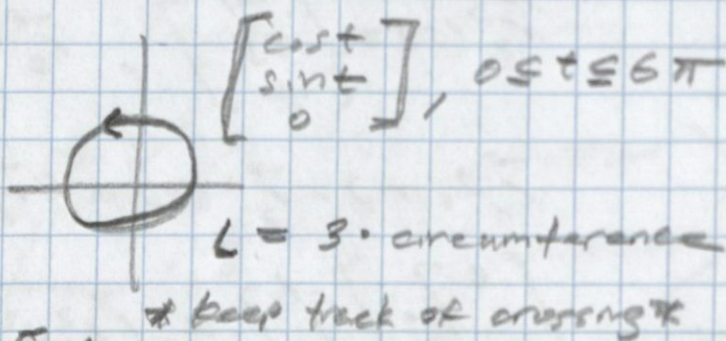 [cos t
sin t
0], 0 ≤ t ≤ 6π
L = 3 · circumference
* keep track of crossing *